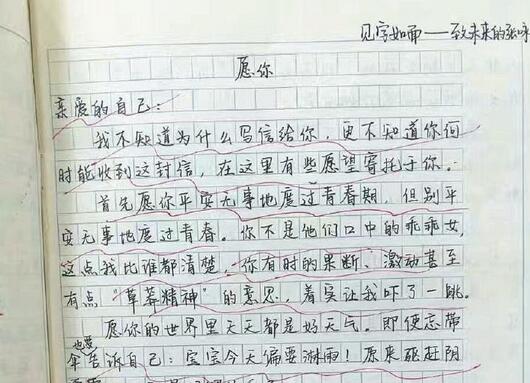 见字如面——致未来的张咏
愿你
亲爱的自己：
我不知道为什么写信给你，更不知道你何
时能收到这封信，在这里有些愿望寄托于你。
首先愿你平安无事地度过青春期，但别平
安无事地度过青春。你不是他们口中的乖乖女，
这点我比谁都清楚，你有时的果断、激动甚至
有点“草莽精神”的意思，着实让我吓了一跳。
愿你的世界里天天都是好天气。即使忘带
伞也要告诉自己：宝宝今天偏要淋雨！原来驱赶阴